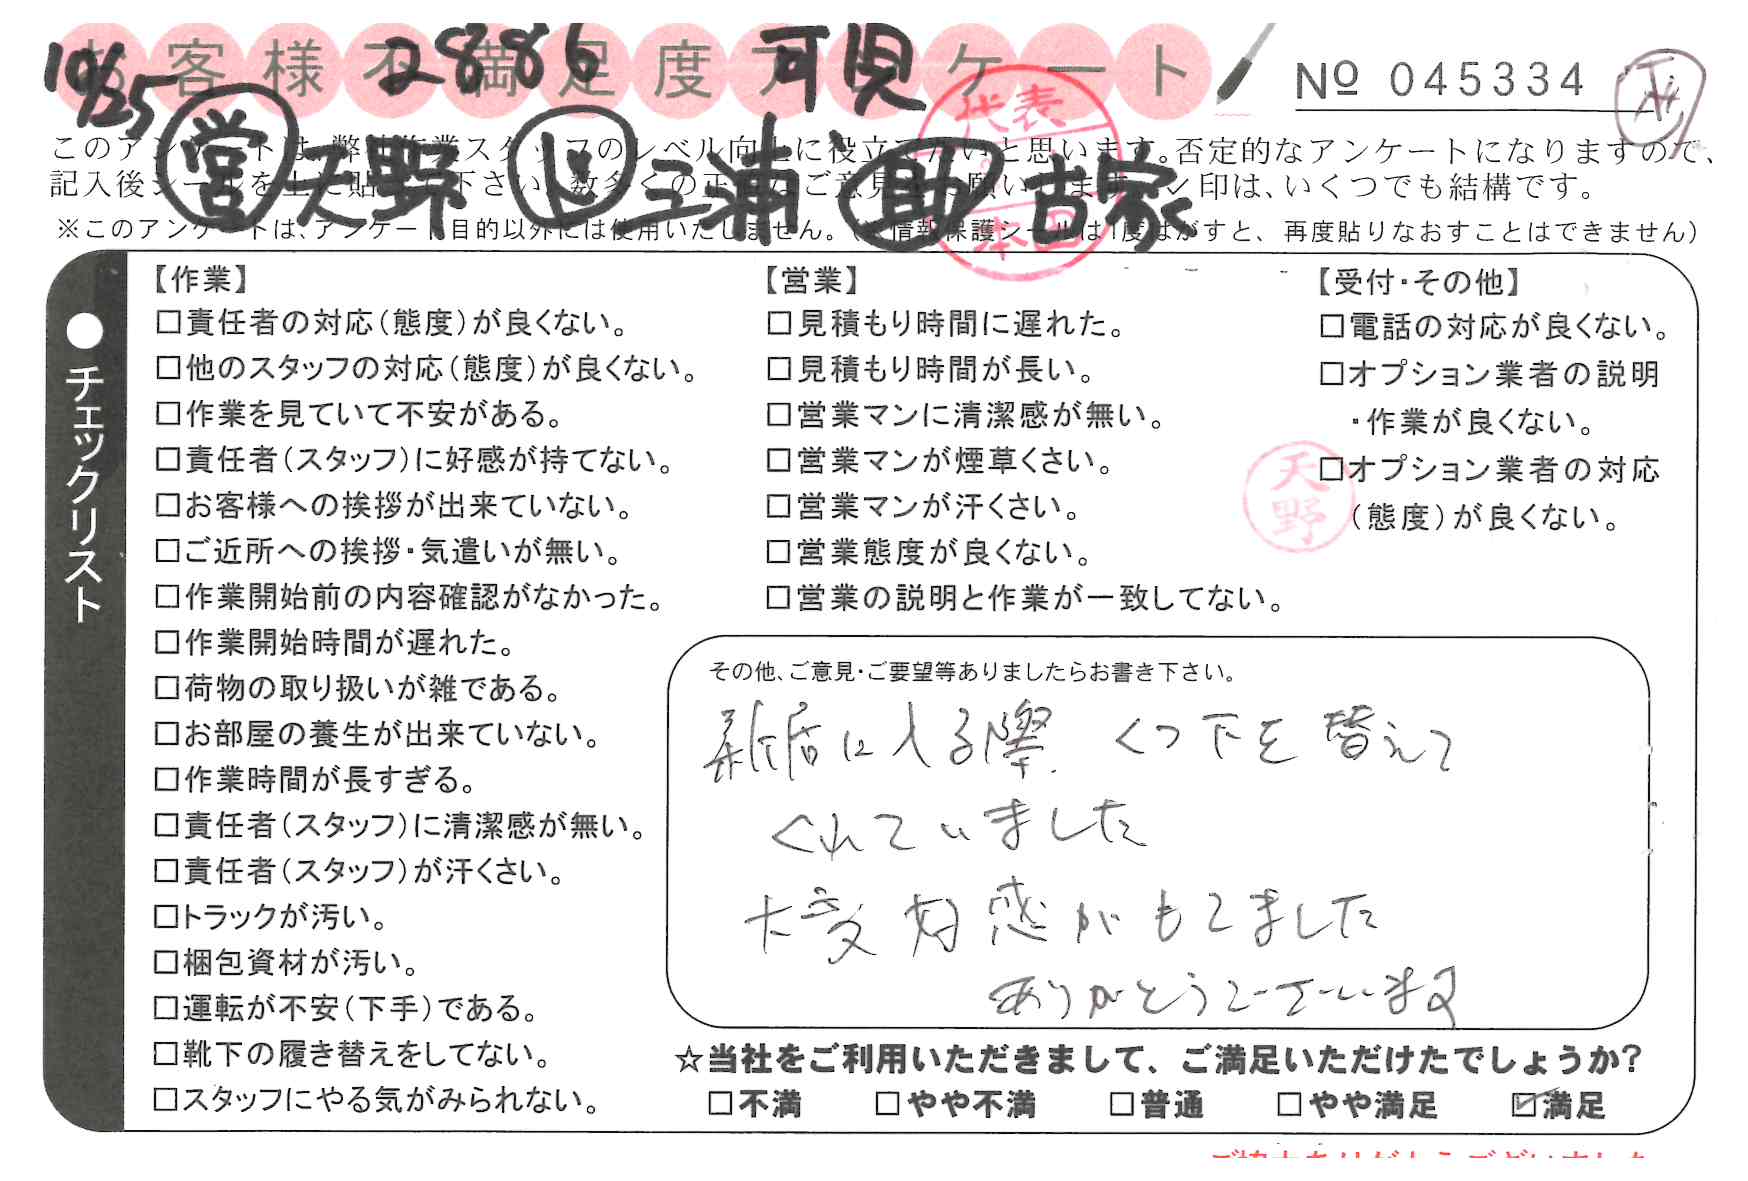 お客様不満足度アンケート
10/25 2886 可児
No 045334
営 天野 ド 三浦 助 古家
代表 本田
このアンケートは、弊社作業スタッフのレベル向上に役立てたいと思います。否定的なアンケートになりますので、
記入後シールを上に貼って下さい。数多くの正直なご意見お願いします。レ印は、いくつでも結構です。
※このアンケートは、アンケート目的以外には使用いたしません。(※情報保護シールは1度はがすと、再度貼りなおすことはできません)
●チェックリスト
【作業】
□責任者の対応(態度)が良くない。
□他のスタッフの対応(態度)が良くない。
□作業を見ていて不安がある。
□責任者(スタッフ)に好感が持てない。
□お客様への挨拶が出来ていない。
□ご近所への挨拶・気遣いが無い。
□作業開始前の内容確認がなかった。
□作業開始時間が遅れた。
□荷物の取り扱いが雑である。
□お部屋の養生が出来ていない。
□作業時間が長すぎる。
□責任者(スタッフ)に清潔感が無い。
□責任者(スタッフ)が汗くさい。
□トラックが汚い。
□梱包資材が汚い。
□運転が不安(下手)である。
□靴下の履き替えをしてない。
□スタッフにやる気がみられない。
【営業】
□見積もり時間に遅れた。
□見積もり時間が長い。
□営業マンに清潔感が無い。
□営業マンが煙草くさい。
□営業マンが汗くさい。
□営業態度が良くない。
□営業の説明と作業が一致してない。
【受付・その他】
□電話の対応が良くない。
□オプション業者の説明
・作業が良くない。
□オプション業者の対応
(態度)が良くない。
天野
その他、ご意見・ご要望等ありましたらお書き下さい。
新居に入る際 くつ下を替えて
くれていました
大変好感がもてました
ありがとうございます
☆当社をご利用いただきまして、ご満足いただけたでしょうか?
□不満 □やや不満 □普通 □やや満足 ☑満足